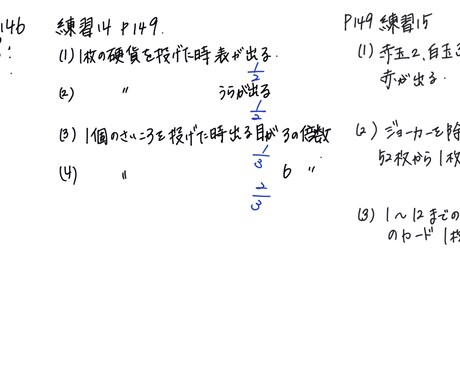 146
練習14 P149.
(1) 1枚の硬貨を投げた時表が出る.
1/2
(2) 〃 うらが出る
1/2
(3) 1個のさいころを投げた時出る目が3の倍数
1/3
(4) 〃 6 〃
2/3
P149 練習15
(1) 赤玉2、白玉3
赤が出る.
(2) ジョーカーを除
52枚から1枚
(3) 1〜12までの
のカード1枚